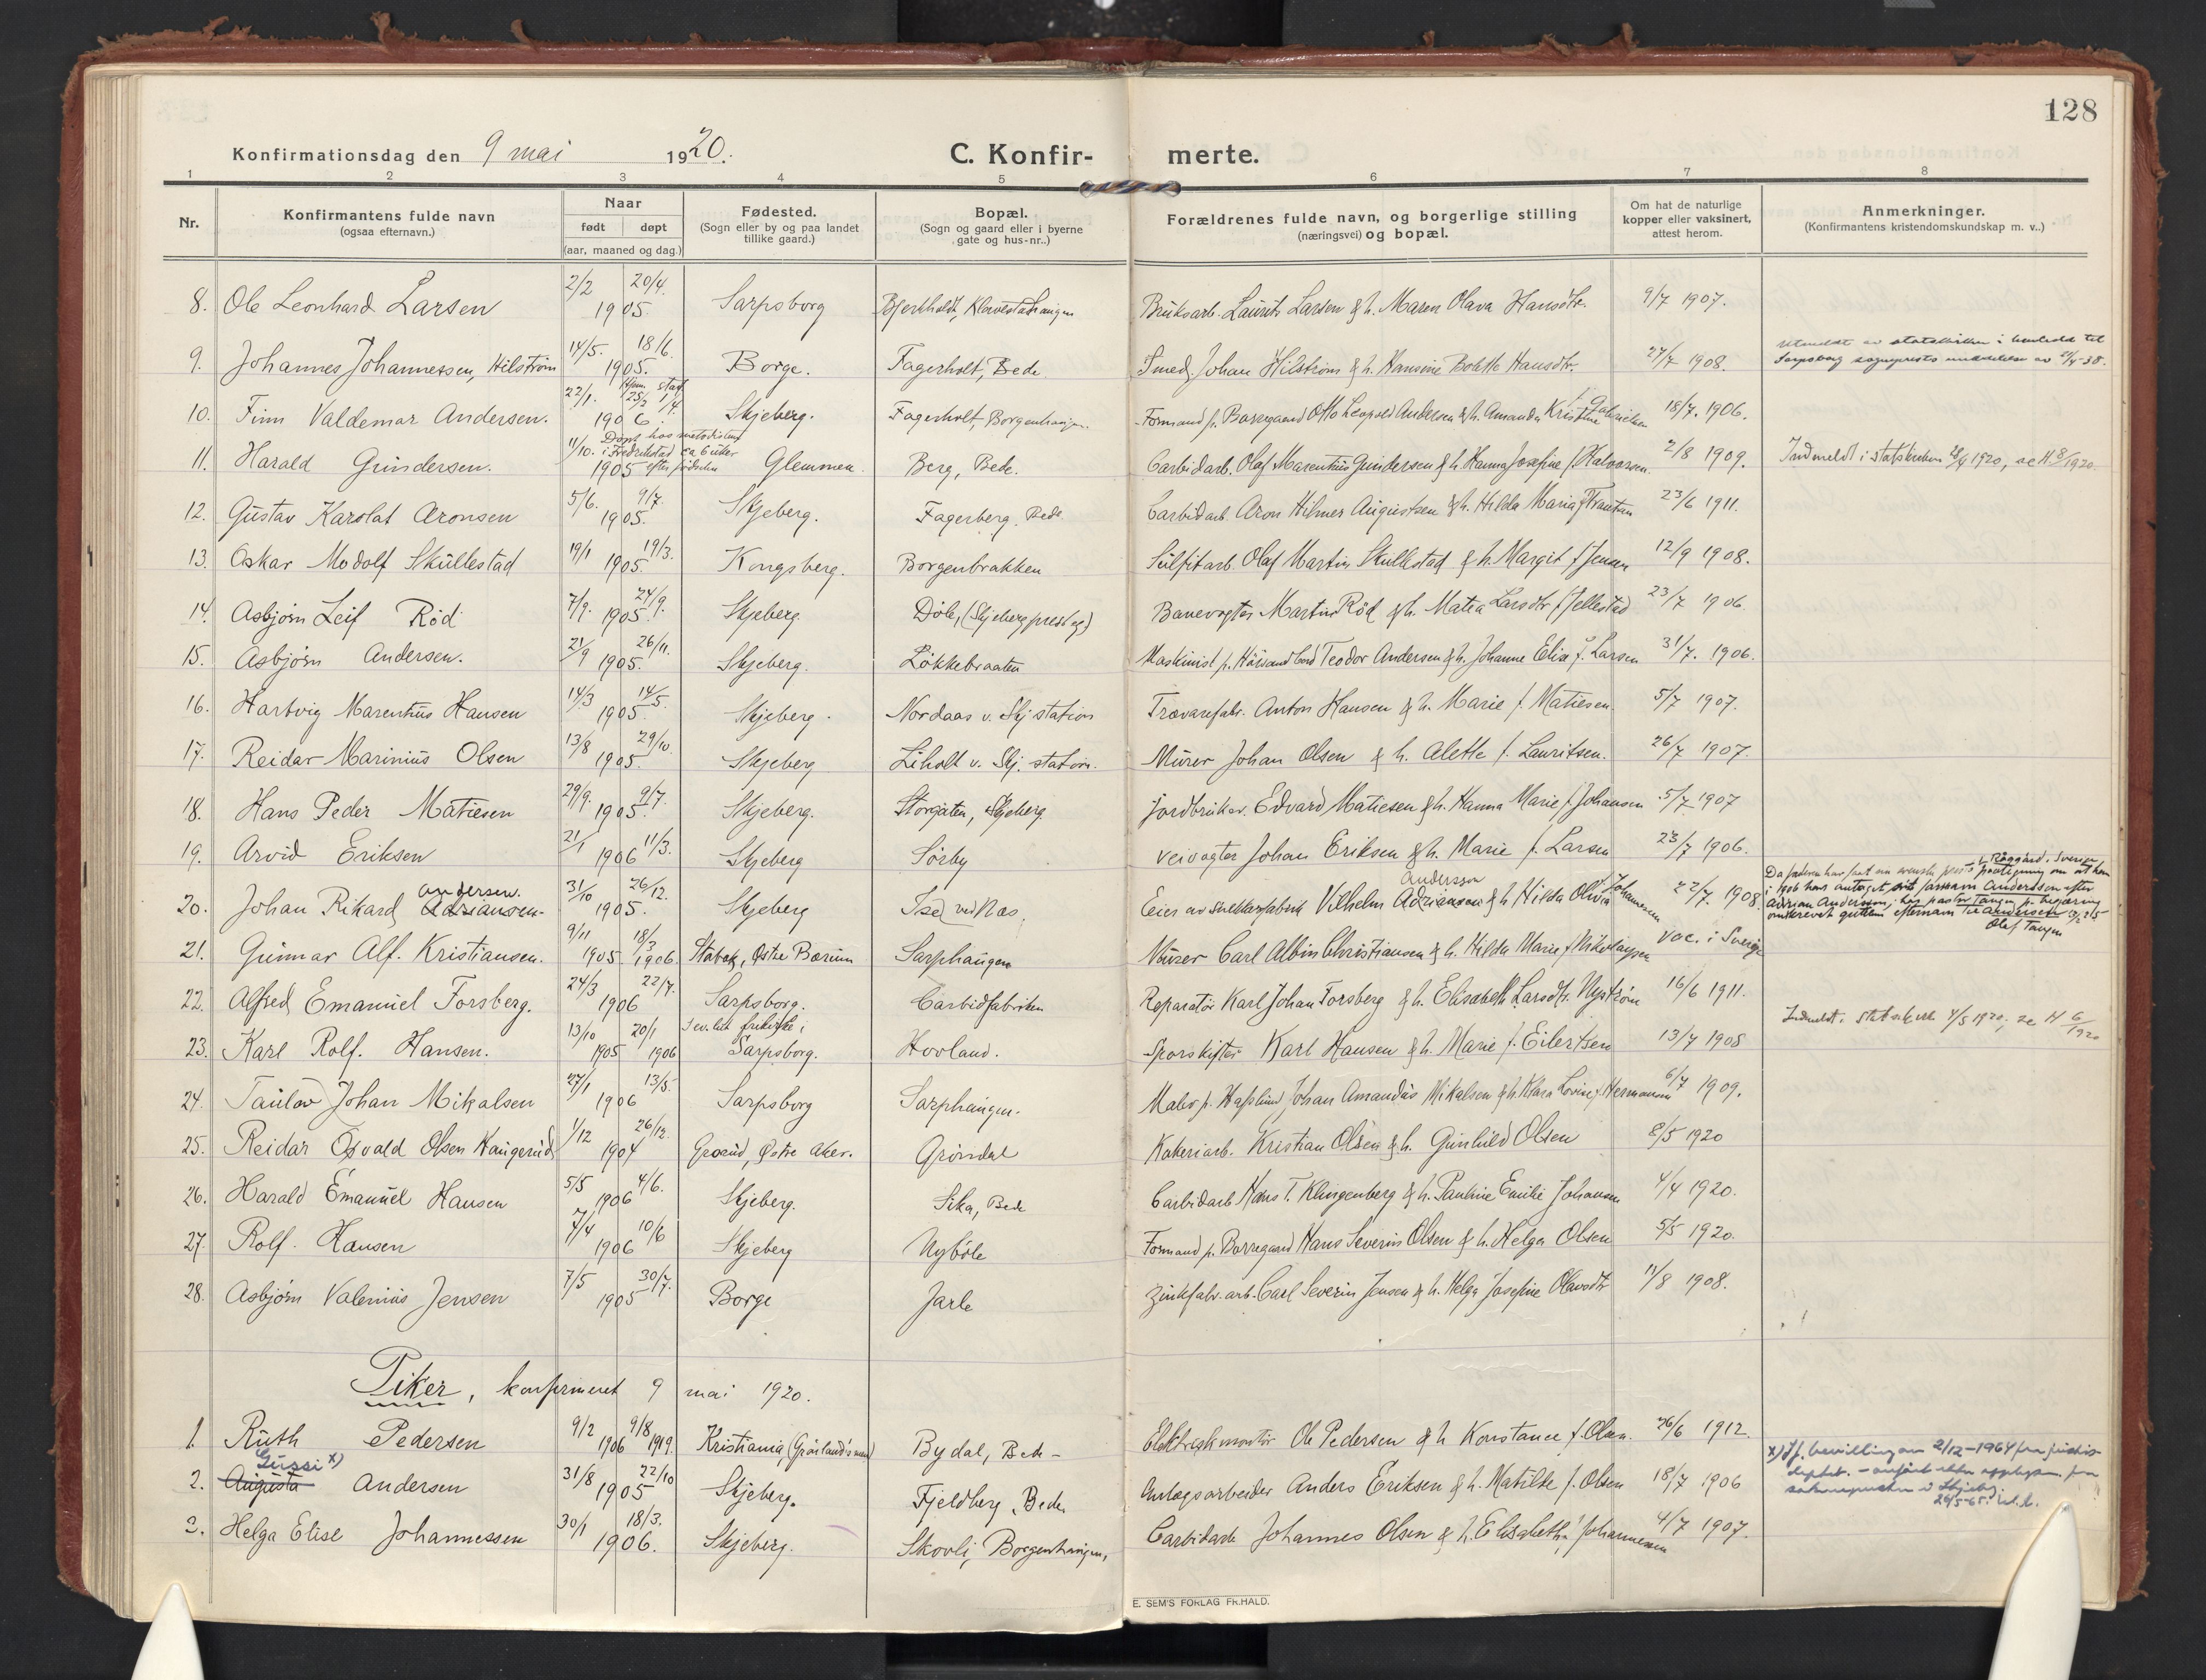 128
Konfirmationsdag den 9 mai 1920.
C. Konfir- merte.
1 2 3 4 5 6 7 8
Nr.
Konfirmantens fulde navn
(ogsaa efternavn.)
Naar
født døpt
(aar, maaned og dag.)
Fødested.
(Sogn eller by og paa landet
tillike gaard.)
Bopæl.
(Sogn og gaard eller i byerne
gate og hus-nr..)
Forældrenes fulde navn, og borgerlige stilling
(næringsvei) og bopæl.
Om hat de naturlige
kopper eller vaksinert,
attest herom.
Anmerkninger.
(Konfirmantens kristendomskundskap m. v..)
8. Ole Leonhard Larsen 2/2 20/4. 1905. Sarpsborg Bjerkholdt, Klavestadhaugen Bruksarb. Laurits Larsen & h. Maren Olava Hansdtr. 9/7 1907.
9. Johannes Johannessen, Hilström 14/5. 18/6. 1905. Borge. Fagerholt, Bede Smed Johan Hilström & h. Hansine Bolette Hansdtr. 27/7 1908. Utmeldt av statskirken i henhold til
Sarpsborg sogneprests meddelelse av
10. Finn Valdemar Andersen. 22/1. Hjem. stad. 1/4. 1906. Skjeberg. Fagerholt, Borgenhaugen. Formand p. Borregaard Otto Leopold Andersen & h. Amanda Kristine f. Gabrielsen 18/7. 1906.
11. Harald Gundersen. 11/10. 1905 Döpt hos metodisterne
i Fredrikstad ca. 6 uker
efter födselen Glemmen Berg, Bede. Carbidarb. Olaf Marentius Gundersen & h. Hanna Josefine f. Halvorsen. 2/8 1909. Indmeldt i statskirken 28/4 1920, se H 8/1920.
12. Gustav Karolat Aronsen 5/6. 9/7. 1905. Skjeberg. Fagerberg, Bede Carbidarb. Aron Hilmer Augustsen & h. Hilda Maria f. Frantsen 23/6 1911.
13. Oskar Modolf Skullestad 19/1 19/3. 1905. Kongsberg. Borgenbrakken Sulfitarb. Olaf Martin Skullestad & h. Margit f. Jensen 12/9 1908.
14. Asbjörn Leif Röd 7/9. 24/9. 1905. Skjeberg. Döle, (Skjeberg presteg) Banevogter Martin Röd & h. Matea Larsdtr. f. Jellestad 23/7 1906.
15. Asbjörn Andersen. 21/9 26/11. 1905. Skjeberg. Lökkebraaten Maskinist p. Teodor Andersen & h. Johanne Elise f. Larsen 31/7. 1906.
16. Hartvig Marentius Hansen 14/3 14/5. 1905. Skjeberg. Nordaas v. Skj station Trævarefabr. Anton Hansen & h. Marie f. Matiesen. 5/7 1907.
17. Reidar Marinius Olsen 13/8 29/10. 1905. Skjeberg Liholt v. Skj. station. Murer Johan Olsen & h. Alette f. Lauritsen. 26/7 1907.
18. Hans Peder Matiesen 29/9. 9/7. 1905. Skjeberg. Storgaten, Skjeberg Jordbruker. Edvard Matiesen & h. Hanna Marie f. Johansen 5/7 1907
19. Arvid Eriksen 21/1 11/3. 1906 Skjeberg Sörby Veivogter Johan Eriksen & h. Marie f. Larsen 23/7 1906.
20. Johan Rikard Adriansen. Andersen. 31/10 26/12. 1905. Skjeberg Ise ved Nes. Eier av Vilhelm Adriansen Andersson & h. Hilda Olivia f. Johannesen 22/7. 1908. Da faderen har faat en svensk prests i Råggärd, Sverige paategning om at han
i 1906 hans antaget sit farsnavn Andersson efter
Adrian Andersson, har pastor Tangen p. begjæring
omskrevet guttens efternavn til Andersen
Olaf Tangen
21. Gunnar Alf. Kristiansen. 9/11 1905. 18/3 1906. Stabek, Östre Bærum Sarphaugen Murer Carl Albin Christiansen & h. Hilda Marie f. Nikolaysen Vac. i Sverige
22. Alfred Emanuel Forsberg. 24/3 22/7. 1906 Sarpsborg. Carbidfabriken Reparatör Karl Johan Forsberg & h. Elisabeth Larsdtr. Nyström 16/6 1911.
23. Karl Rolf. Hansen. 13/10 1905 20/1 1906 I ev. luth frikirke i
Sarpsborg. Hovland. Sporskifter Karl Hansen & h. Marie f. Eilertsen 13/7 1908 Indmeldt i statskirk 4/5 1920; se H 6/1920
24. Taulov Johan Mikalsen 27/1 13/5. 1906 Sarpsborg Sarphaugen. Maler p. Hafslund Johan Amandus Mikalsen & h. Klara Lovise f. Hermansen 6/7 1909.
25. Reidar Osvald Olsen Haugerud 1/12 26/12. 1904 Grorud, Östre Aker. Gröndal Kokeriarb. Kristian Olsen & h. Gunhild Olsen 8/5 1920
26. Harald Emanuel Hansen 5/5 4/6. 1906 Skjeberg. Sika, Bede Carbidarb Hans T. Klingenberg & h. Pauline Emilie Johansen 4/4 1920.
27. Rolf. Hansen 7/4 10/6 1906 Skjeberg Nyböle Formand p. Borregaard Hans Severin Olsen & h. Helga Olsen 5/5 1920.
28. Asbjörn Valenius Jensen 7/5 30/7. 1905 Borge Jarle Zinkfabr. arb. Carl Severin Jensen & h. Helga Josefine Olavsdtr 11/8 1908.
Piker, konfirmeret 9 mai 1920.
1. Ruth Pedersen 9/2 1906 9/8 1919. Kristiania, (Grönlands men) Bydal, Bede Elektriskmontör Ole Pedersen & h Konstance f. Olsen. 26/6 1912.
2. Augusta Gussi x) Andersen 31/8 22/10 1905 Skjeberg. Fjeldberg, Bede Anlægsarbeider Anders Eriksen & h. Matilde f. Olsen 18/7 1906 x) Jf. bevilling av 2/12-1964 fra justis-
deptet. - anfört etter opplysn. fra
soknepresten i Skjeberg.
26/5-65.
3. Helga Elise Johannessen 30/1 18/3. 1906. Skjeberg. Skovli, Borgenhaugen, Carbidarb Johannes Olsen & h. Elisabeth f. Johannessen 4/7 1907.
E. SEM'S FORLAG FR.HALD.